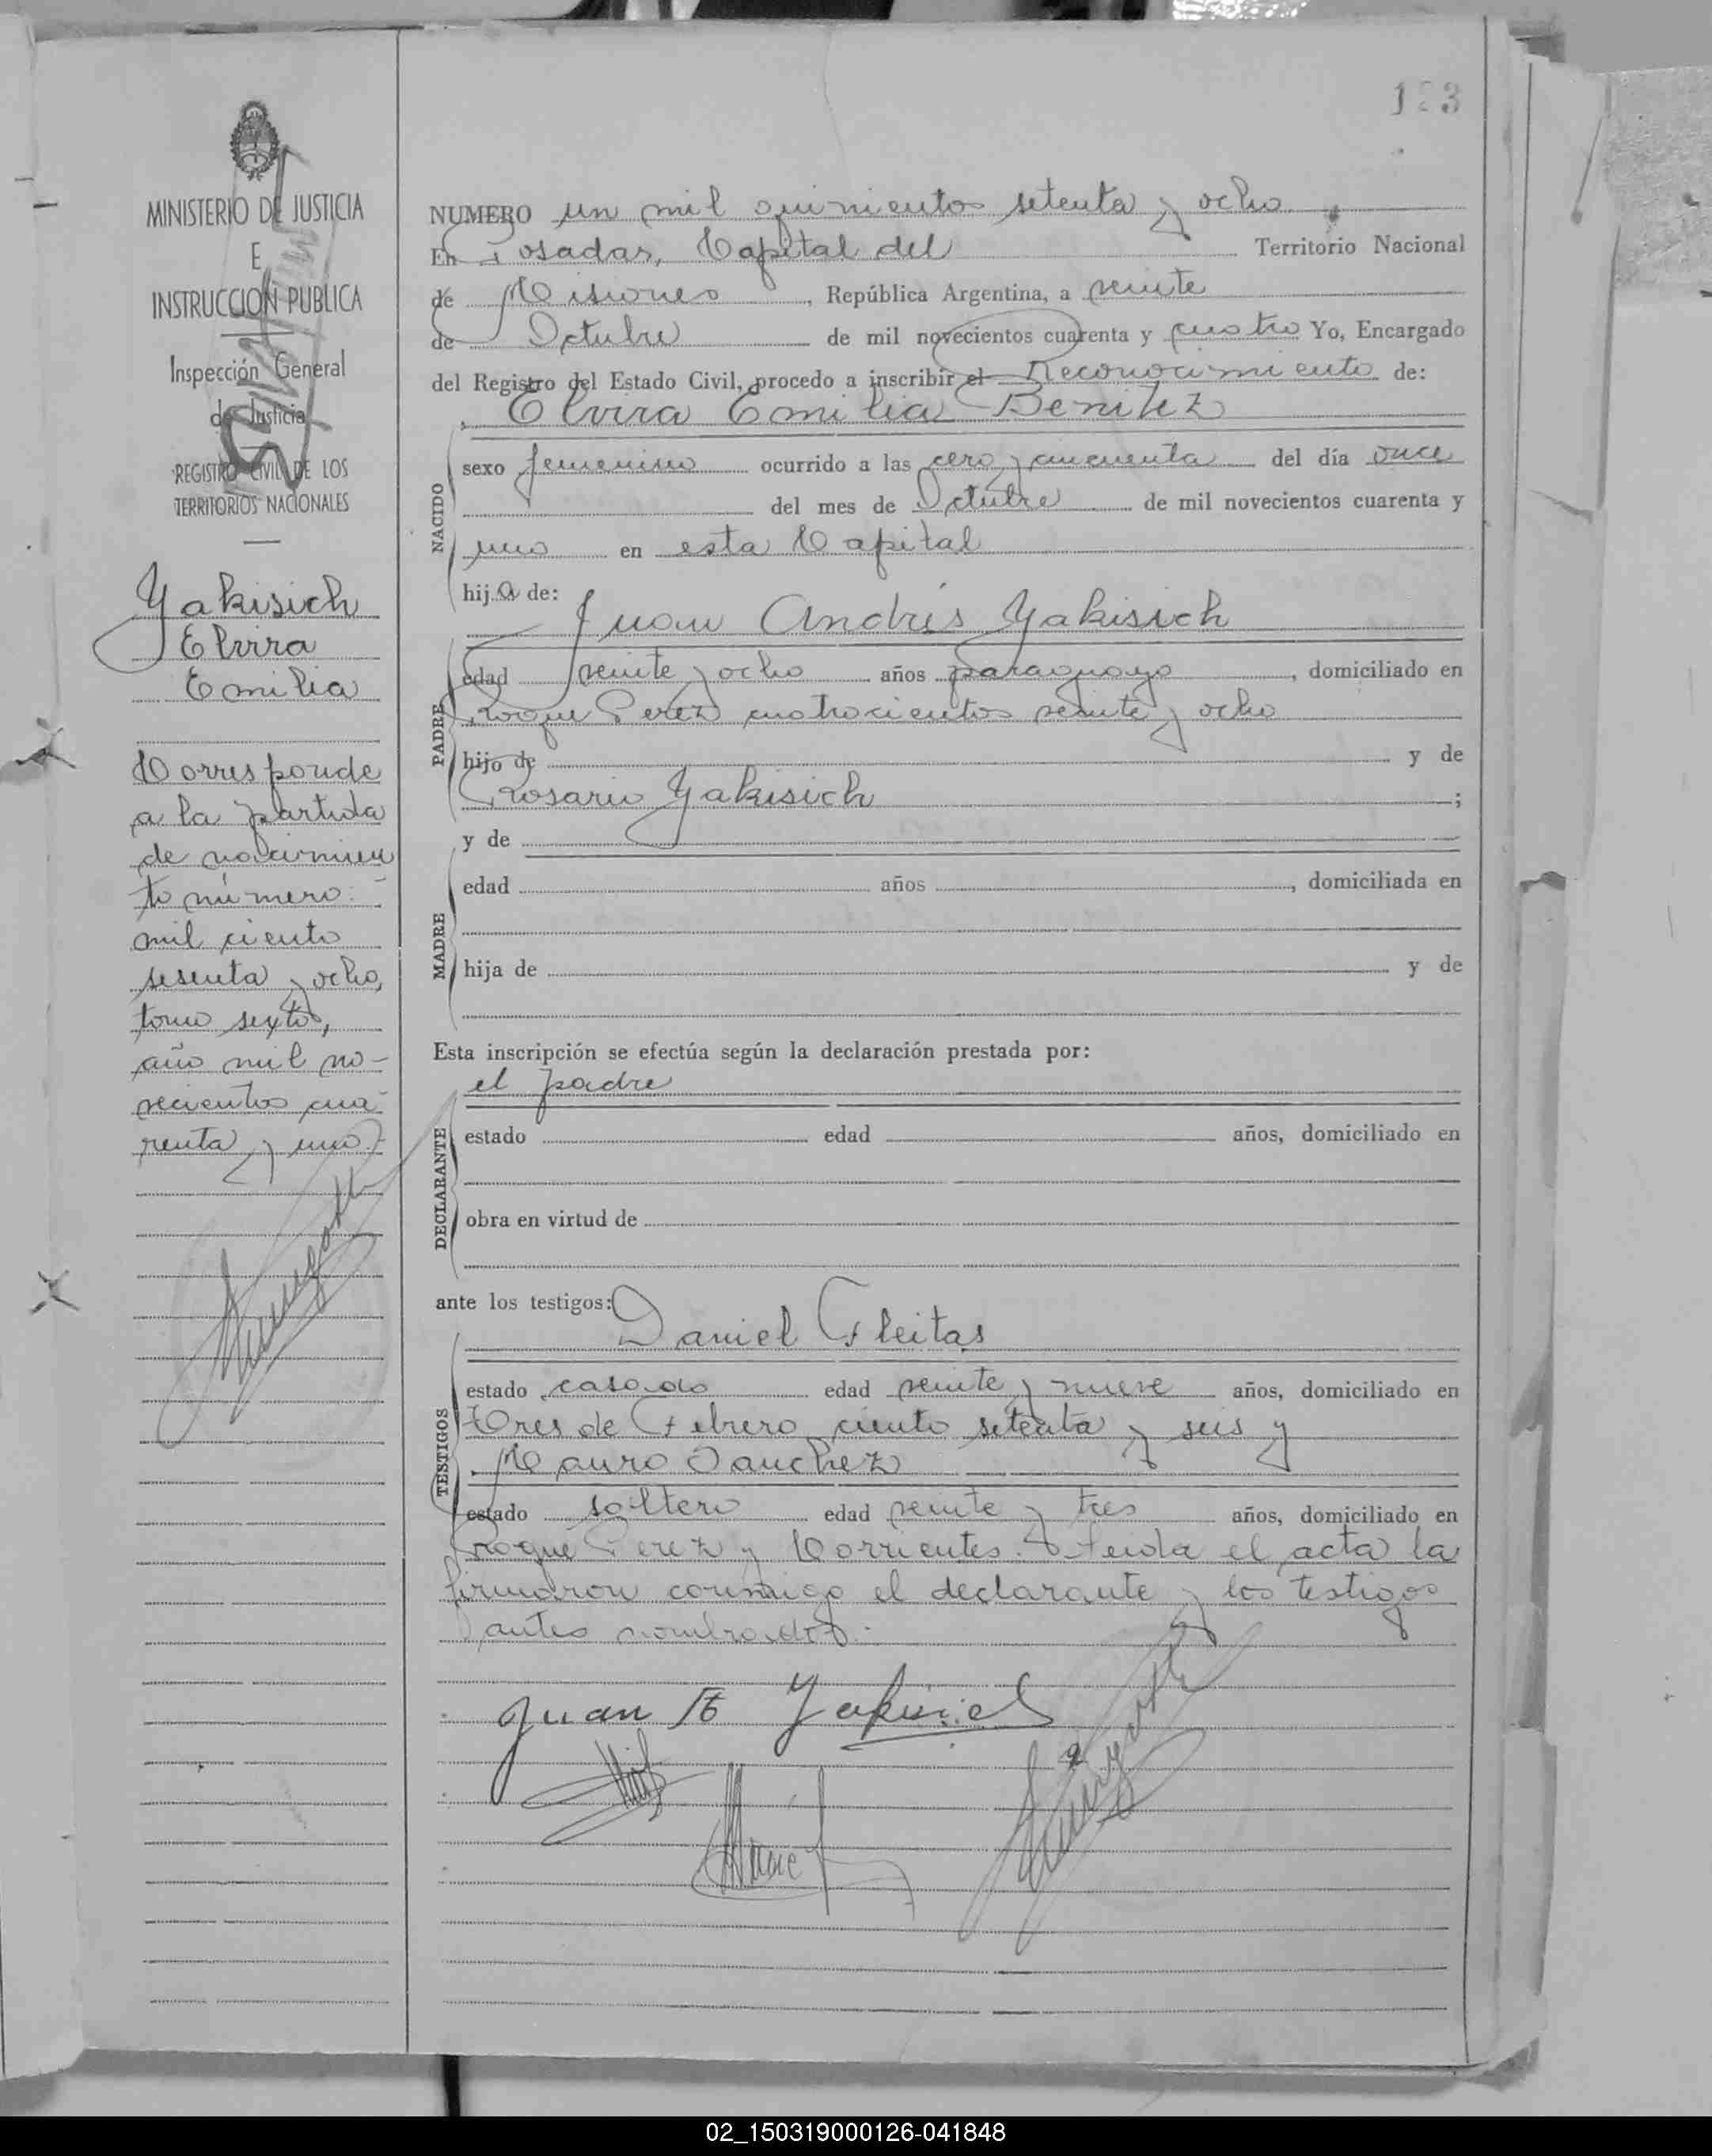 MINISTERIO DE JUSTICIA
E
INSTRUCCION PUBLICA
Inspección General
de Justicia
REGISTRO CIVIL DE LOS
TERRITORIOS NACIONALES
Yakisich
Elvira
Emilia
Corresponde
a la partida
de nacimien
to número:
mil ciento
sesenta y ocho,
tomo sexto,
año mil no-
vecientos cua-
renta y uno.-
NUMERO un mil quinientos setenta y ocho
En Posadas, Capital del Territorio Nacional
de Misiones, República Argentina, a veinte
de Octubre de mil novecientos cuarenta y cuatro Yo, Encargado
del Registro del Estado Civil, procedo a inscribir el Reconocimiento de:
Elvira Emilia Benitez
NACIDO
sexo femenino ocurrido a las cero y cincuenta del día once
del mes de Octubre de mil novecientos cuarenta y
uno en esta Capital
hija de:
Juan Andrés Yakisich
PADRE
edad veinte y ocho años paraguayo, domiciliado en
Roque Perez cuatrocientos veinte y ocho
hijo de y de
Rosario Yakisich ;
y de
MADRE
edad años , domiciliada en
hija de y de
Esta inscripción se efectúa según la declaración prestada por:
el padre
DECLARANTE
estado edad años, domiciliado en
obra en virtud de
ante los testigos:
Daniel Fleitas
TESTIGOS
estado casado edad veinte y nueve años, domiciliado en
Tres de Febrero ciento setenta y seis y
Mauro Sanchez
estado soltero edad veinte y tres años, domiciliado en
Roque Perez y Corrientes. Leida el acta la
firmaron conmigo el declarante y los testigos
antes nombrados.-
Juan A Yakisich
02_150319000126-041848